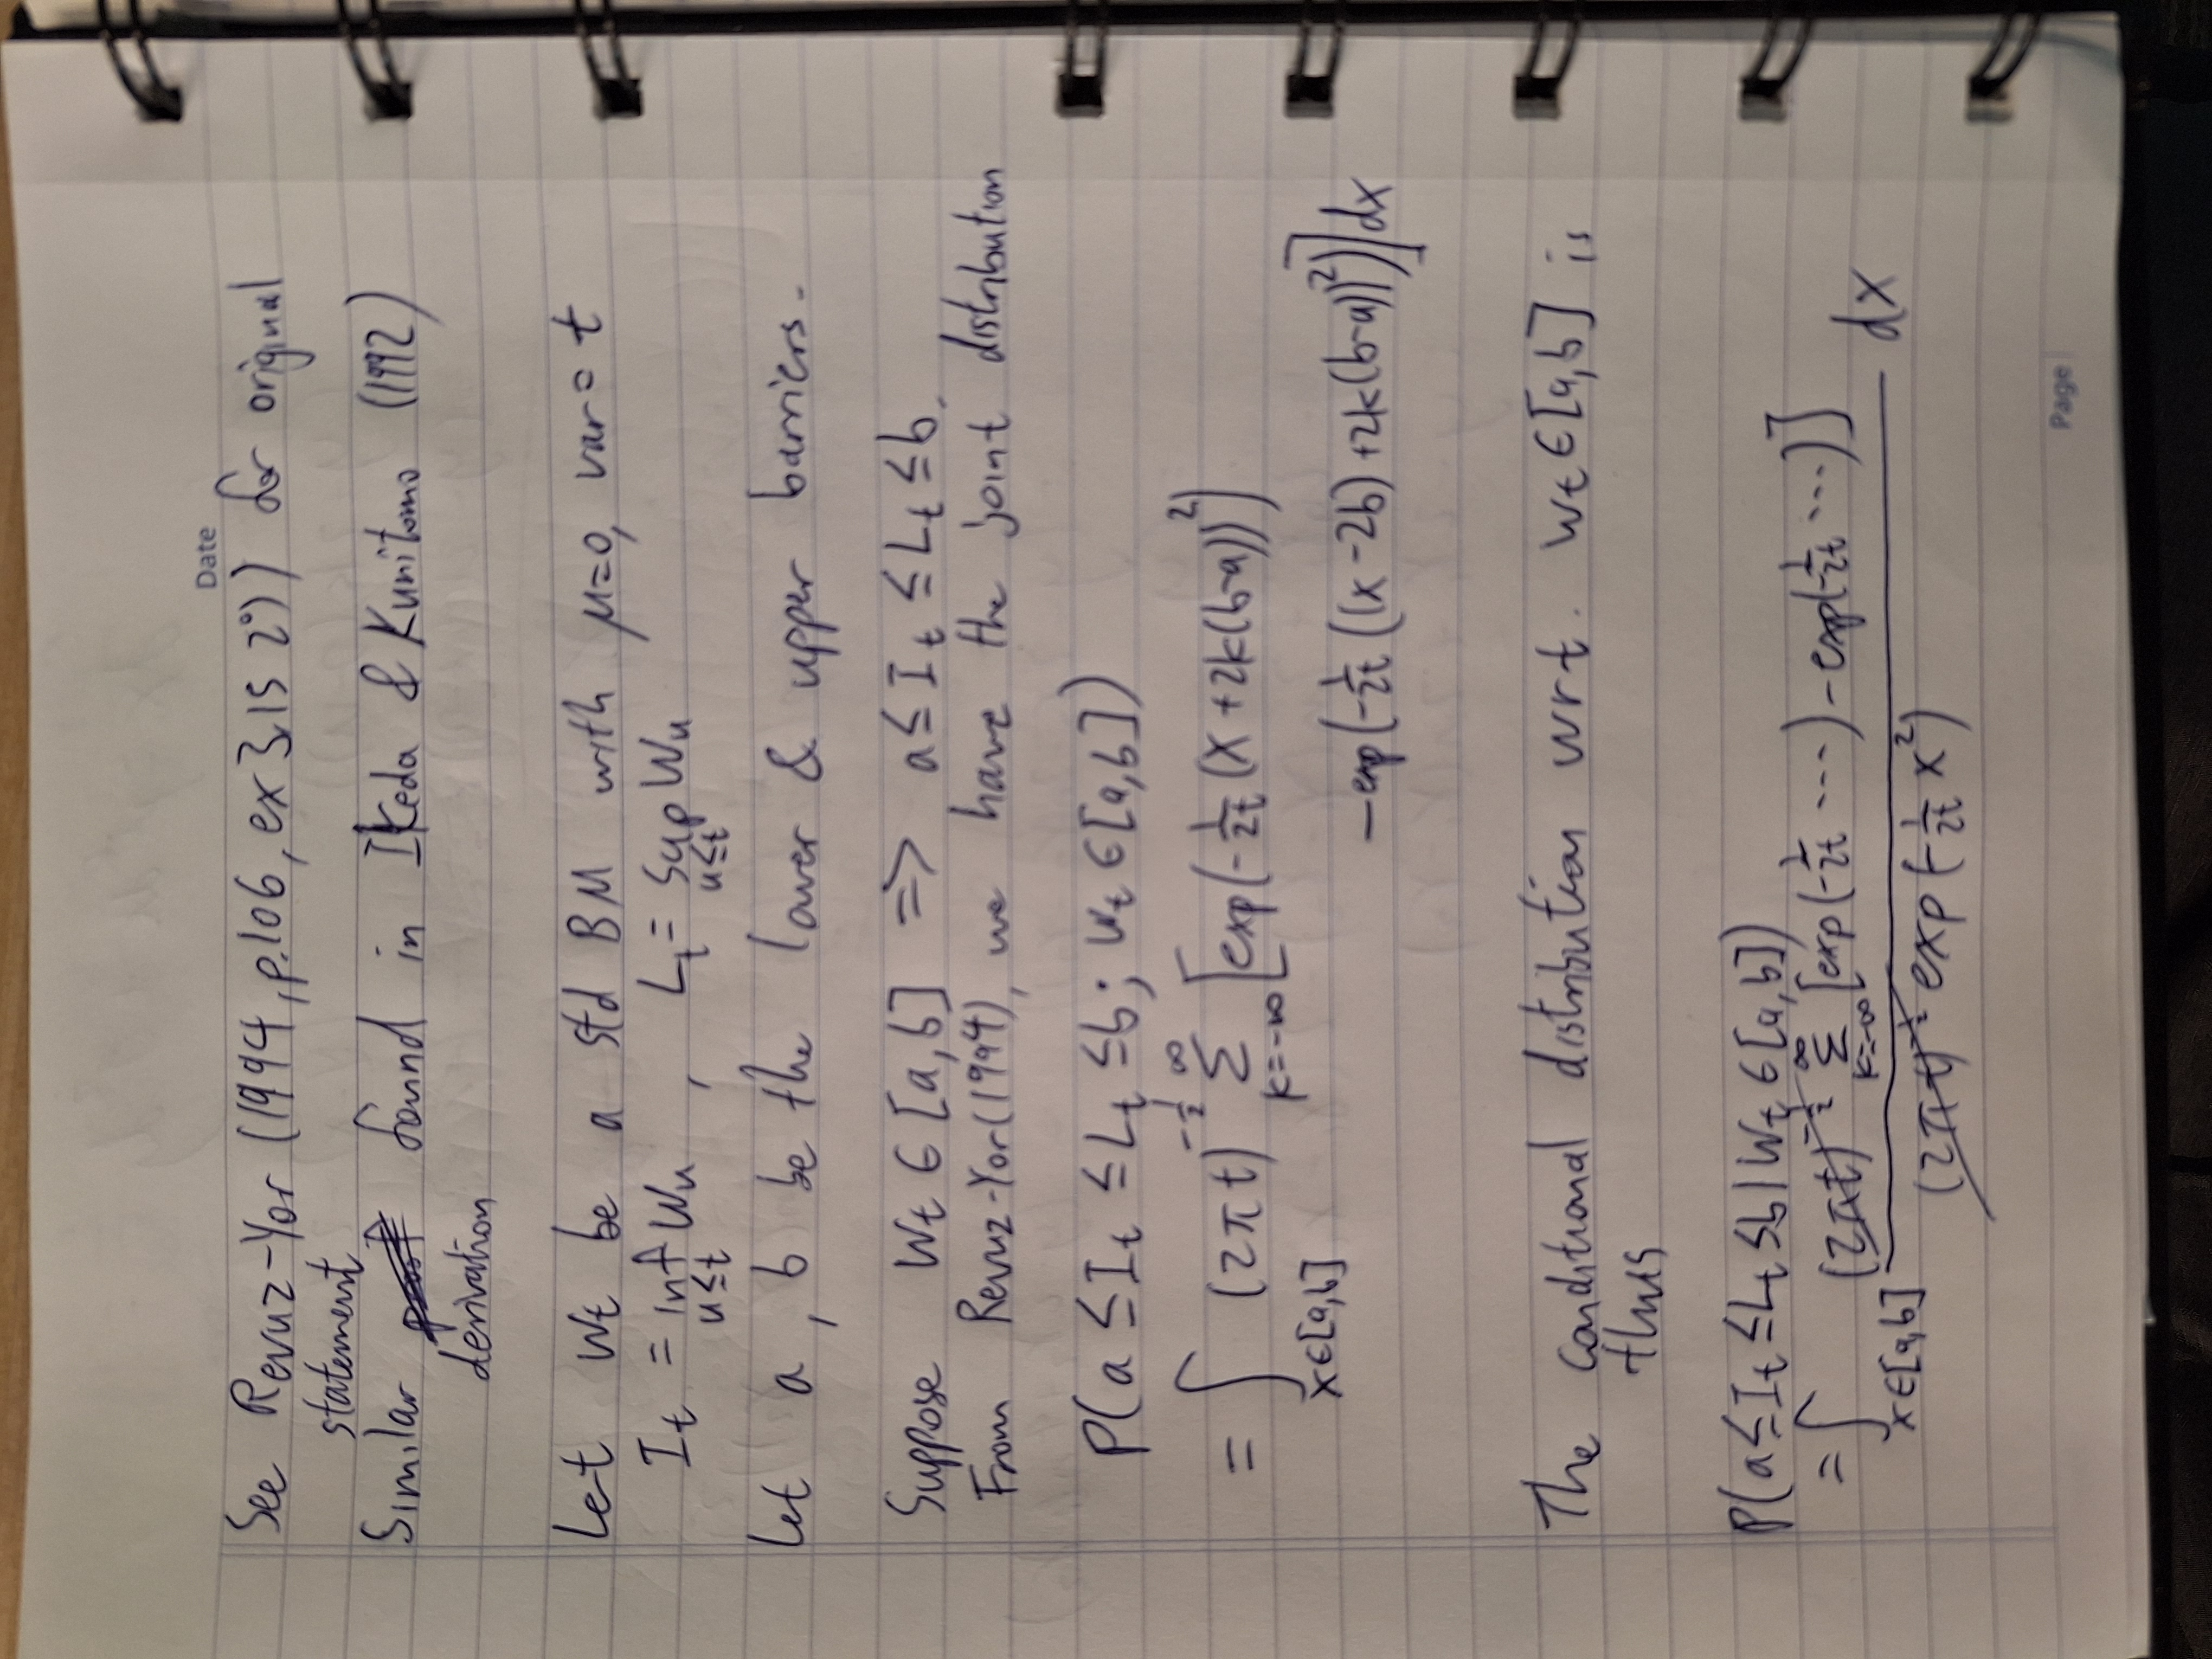 Date
See Revuz-Yor (1994, p.106, ex 3.15 2°)) for original
statement
Similar found in Ikeda & Kunitomo (1992)
derivation
Let Wt be a std BM with μ=0, var = t
It = inf Wu , Lt = sup Wu
u≤t u≤t
Let a, b be the lower & upper barriers.
Suppose Wt ∈ [a,b] => a ≤ It ≤ Lt ≤ b.
From Revuz-Yor(1994), we have the joint distribution
P(a ≤ It ≤ Lt ≤ b; Wt ∈ [a,b])
= ∫_{x∈[a,b]} (2πt)^{-1/2} Σ_{k=-∞}^{∞} [exp(-1/2t (x + 2k(b-a))^2)
- exp(-1/2t ((x-2b) + 2k(b-a))^2)] dx
The conditional distribution wrt. Wt ∈ [a,b] is
thus
P(a ≤ It ≤ Lt ≤ b | Wt ∈ [a,b])
= ∫_{x∈[a,b]} (2πt)^{-1/2} Σ_{k=-∞}^{∞} [exp(-1/2t ...) - exp(-1/2t ...)] dx
(2πt)^{-1/2} exp(-1/2t x^2)
Page